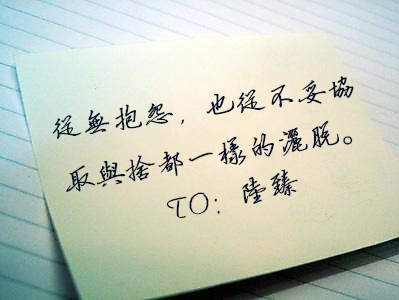 從無抱怨，也從不妥協
取與捨都一樣的灑脱。
TO: 陸臻